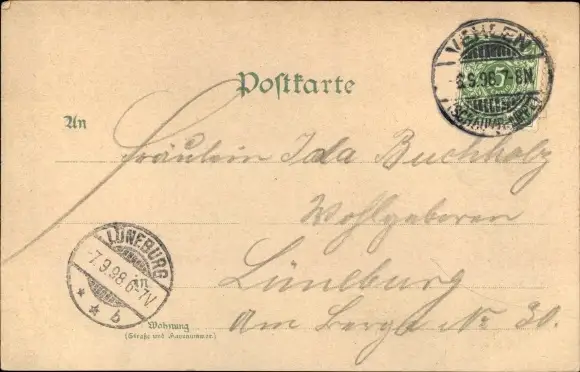 VEHLEN
6.9.98 7-8N
(SCHAUMB.-LIPPE)
5
Postkarte
An
Fräulein Ida Buchholz
Wohlgeboren
in Lüneburg
Am Berge No 30.
LÜNEBURG
7.9.98. 6-7V
* * b
Wohnung
(Straße und Hausnummer)